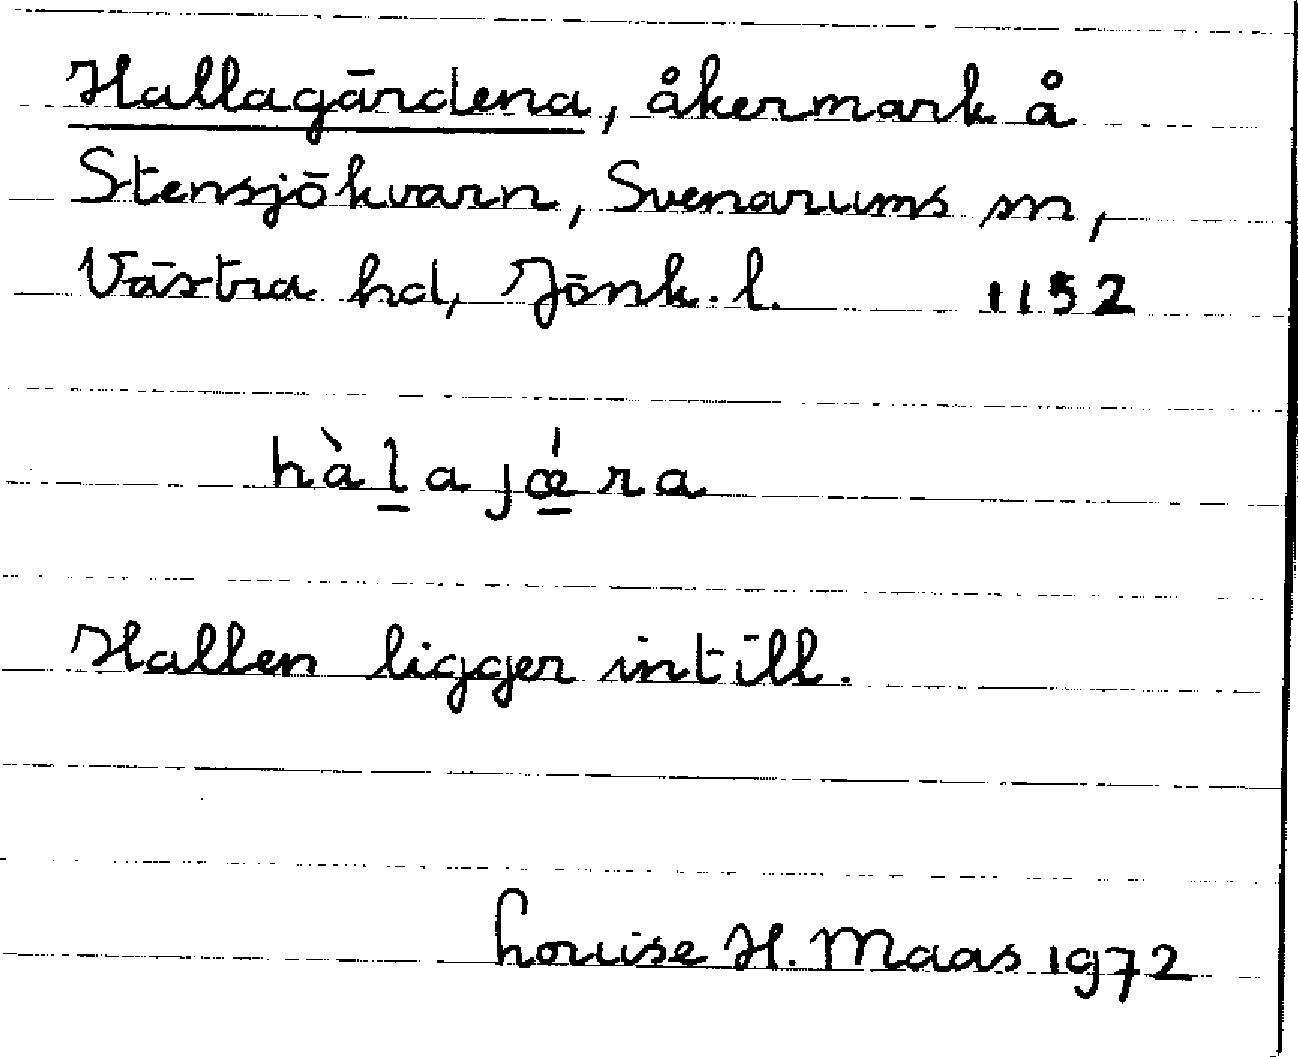 Hallagärdena, åkermark å
Stensjökvarn, Svenarums sn,
Västra hd, Jönk. l. 1152
hàl̲ajœ̲́ra
Hallen ligger intill.
Louise H. Maas 1972